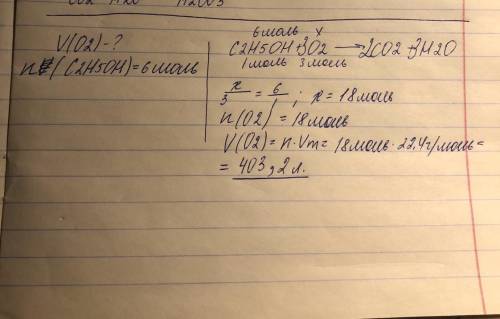 CO2 H2O H2CO3
V(O2)-?
n(C2H5OH)=6моль
6моль x
C2H5OH+3O2 → 2CO2+3H2O
1моль 3моль
x/3 = 6/1 ; x = 18моль
n(O2) = 18моль
V(O2)= n·Vm= 18моль·22,4г/моль=
= 403,2 л.